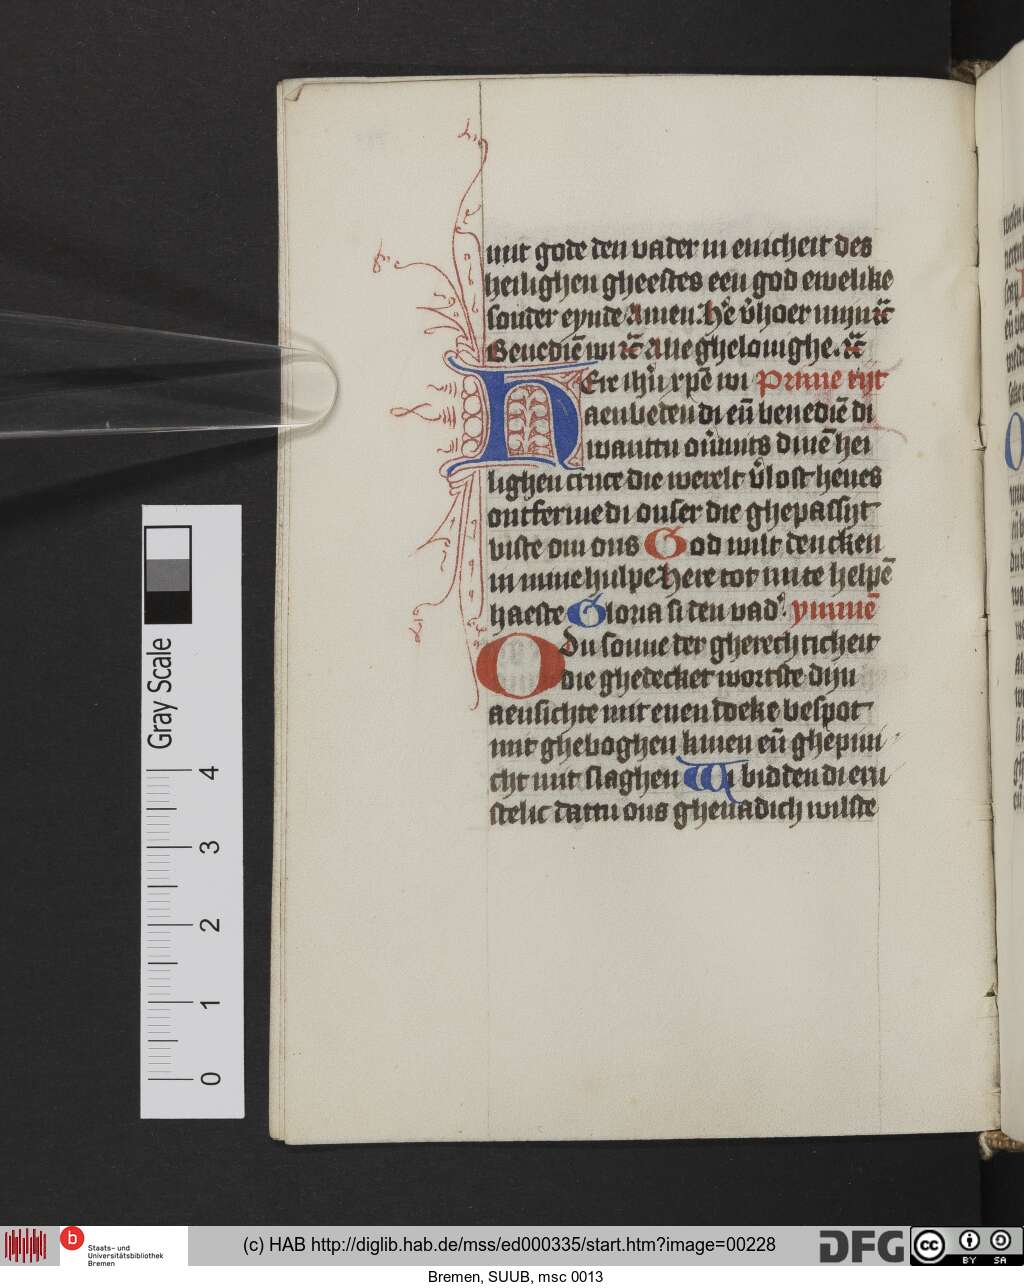 mit gode den vader in enicheit des
heilighen gheestes een god ewelike
sonder eynde Amen. He v̉hoer mijn ꝛc̄
Benediē wi ꝛc̄ Alle ghelouighe. ꝛc̄
HEre ihū xpē wi Prime tijt
aenbeden di eñ benediē di
wanttu ou̓mits dinē hei
lighen cruce die werelt v̉lost heues
ontferme di onser die ghepassijt
biste om ons God wilt dencken
in mine hulpe Here tot mi te helpē
haeste Gloria si den vad̓. ymmē
O du sonne der gherechticheit
die ghedecket wortste dijn
aensichte mit enen doeke bespot
mit gheboghen knien eñ ghepini
cht mit slaghen Wi bidden di ern
stelic dattu ons ghenadich wilste
Gray Scale
4
3
2
1
0
b Staats- und
Universitätsbibliothek
Bremen
(c) HAB http://diglib.hab.de/mss/ed000335/start.htm?image=00228
DFG
cc BY SA
Bremen, SUUB, msc 0013